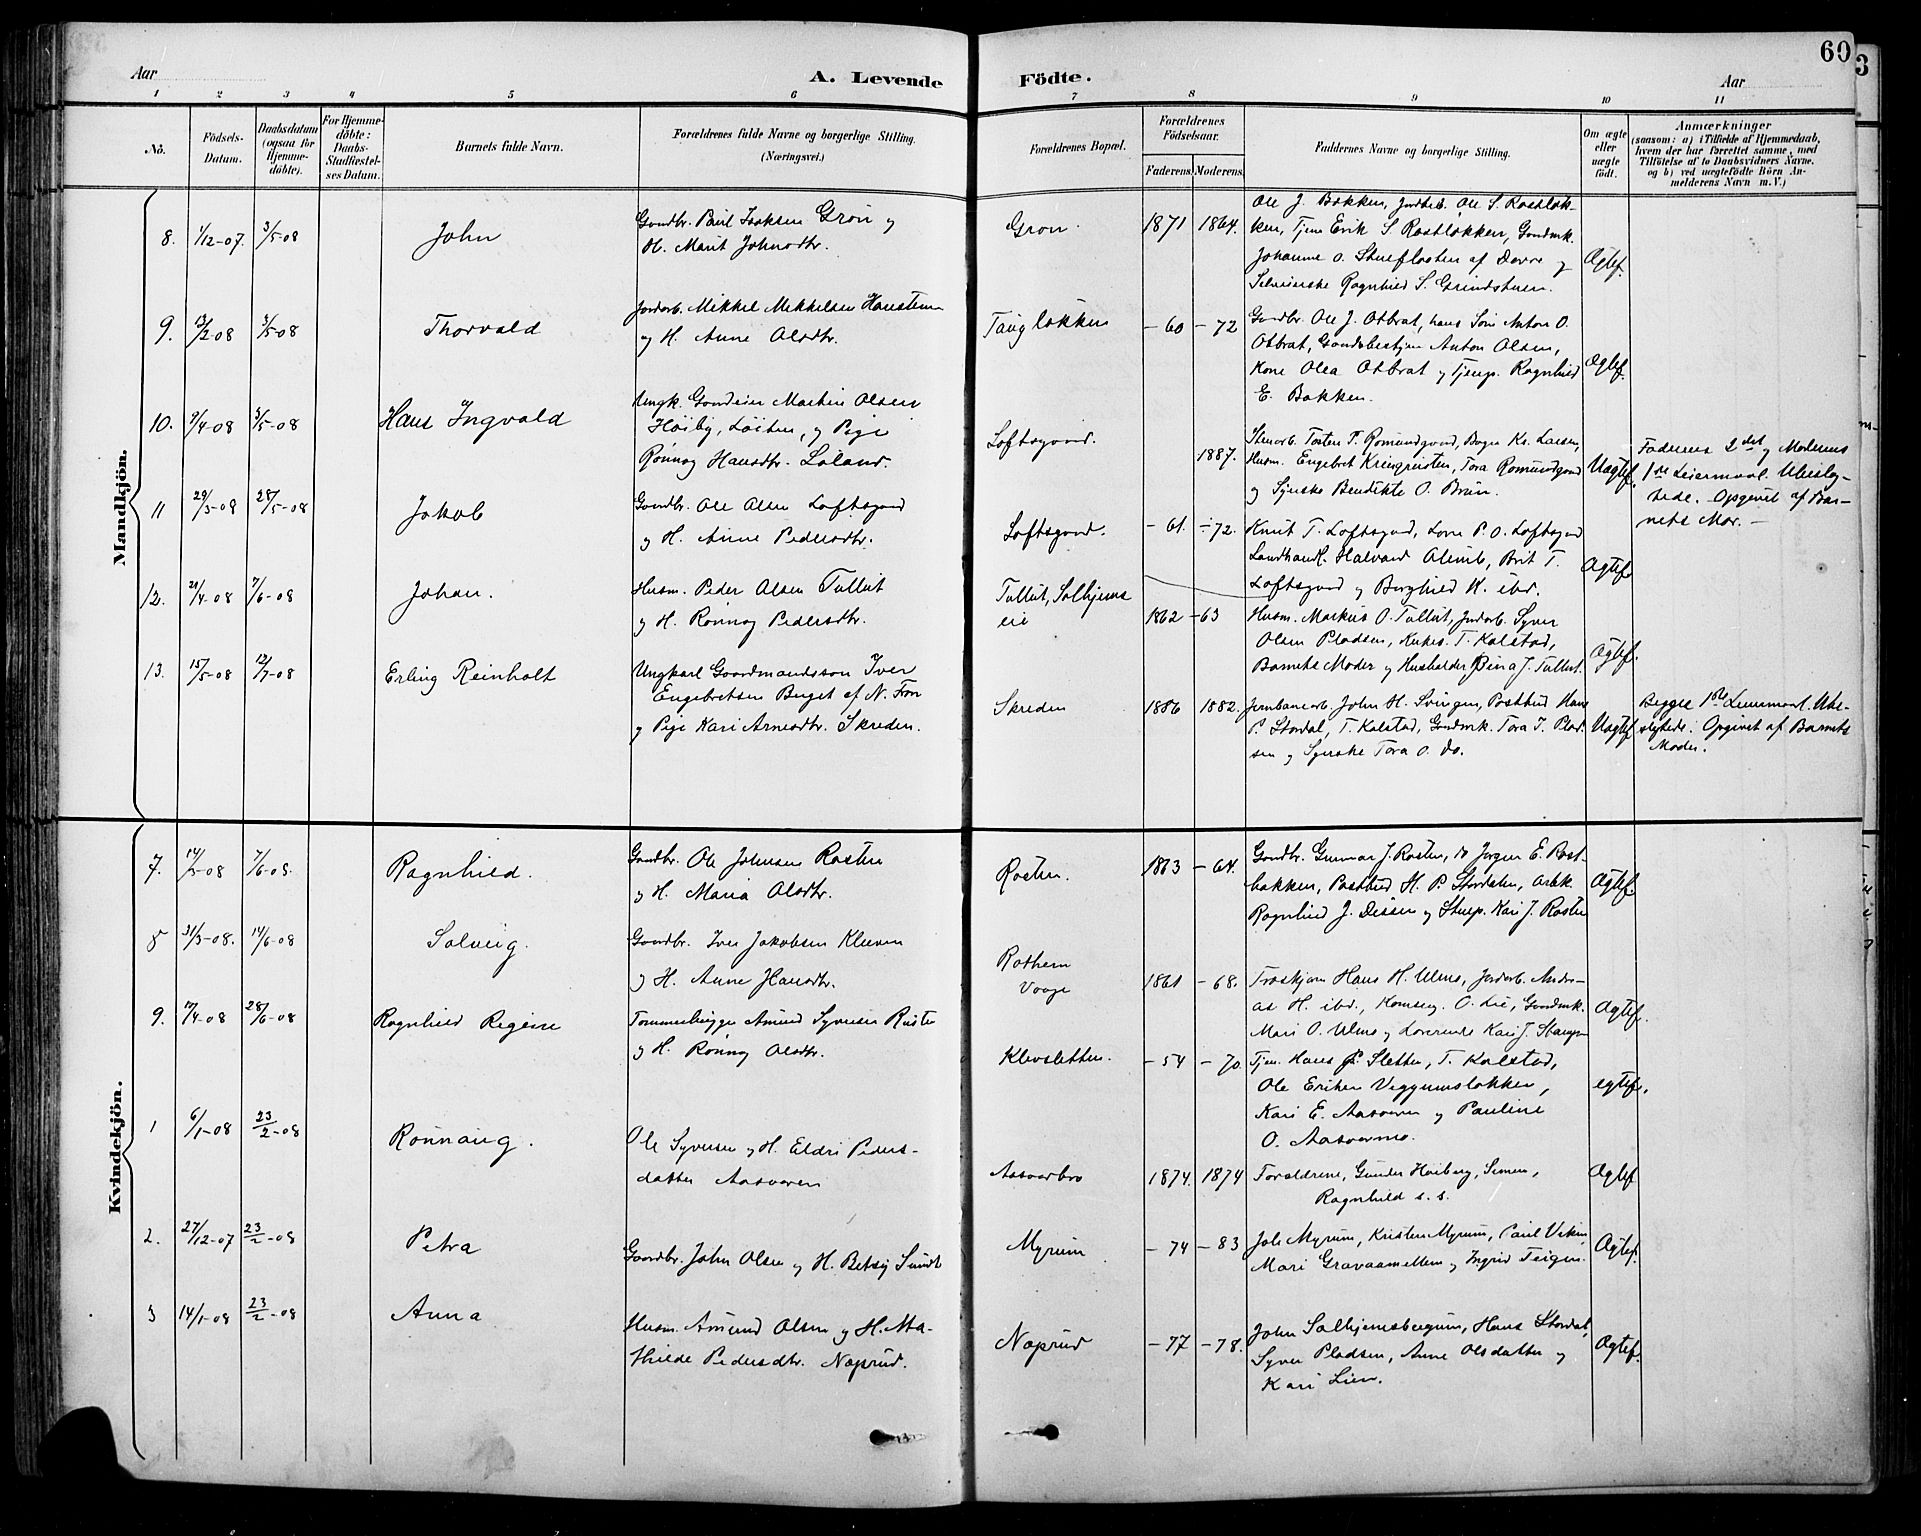 60
3
Aar
A. Levende
Födte.
Aar
1 2 3 4 5 6 7 8 9 10 11
No.
Födsels-
Datum.
Daabsdatum
(ogsaa for
Hjemme-
döbte).
For Hjemme-
döbte:
Daabs-
Stadfæstel-
ses Datum.
Barnets fulde Navn.
Forældrenes fulde Navne og borgerlige Stilling.
(Næringsvei.)
Forældrenes Bopæl.
Forældrenes
Födselsaar.
Faderens. Moderens.
Faddernes Navne og borgerlige Stilling.
Om ægte
eller
uægte
födt.
Anmærkninger
(saasom: a) i Tilfælde af Hjemmedaab,
hvem der har forrettet samme, med
Tilföielse af to Daabsvidners Navne,
og b) ved uægtefödte Börn An-
melderens Navn m. V.)
Mandkjön.
8. 1/12-07. 3/5-08 John
Gaardbr. Paul Isaksen Grøn og
H. Marit Johnsdtr.
Grøn. 1871 1864.
Ole J. Bakken, Jordbr. Ole S. Rostløk-
ken, Tjen Erik S Rostløkken, Gaardmk.
Johanne O. Stueflaaten af Dovre og
Ragnhild S. Grindstuen.
Ægtef.
9. 13/2-08 3/5-08 Thorvald
Jordarb. Mikkel Mikkelsen Haustein
og H. Anne Olsdtr.
Tangløkken -60 -72
Gaardbr. Ole J. Otbrat, hans Søn Anton O.
Otbrat, Anton Olsen,
Kone Olea Otbrat og Tjenp. Ragnhild
E. Bakken.
Ægtef.
10. 9/4-08 3/5-08 Hans Ingvald
Ungk. Gaardeier Martin Olsen
Høiby, Løiten, og Pige
Rønnog Hansdtr. Løland.
Loftsgaard. 1887.
Stenarb. Tosten T. Romundgaard, Kr. Larsen,
Husm. Engebret Kringristen, Tora Romundgaard
og Syerske Bendikte O. Brun.
Uægtef.
Faderens 2det og Moderens
1ste Leiermaal. Ubeslæg-
tede. Opgivet af Bar-
nets Mor. -
11 29/3-08 28/5-08 Jakob
Gaardbr. Ole Olsen Loftsgaard
og H. Anne Pedersdtr.
Loftsgaard. -61. -72.
Knut T. Loftsgaard, Lone P. O. Loftsgaard
Landhandl. Halvard Brit T.
Loftsgaard og Borghild K. ibd.
Ægtef.
12. 21/4-08 7/6-08 Johan.
Husm. Peder Olsen Tullut
og H. Rønnog Pedersdtr.
Tullut, Solhjems
eie 1862 -63
Husm. Markus O. Tullut, Jordarb. Syver
Olsen Pladsen, Kirkes. T. Kalstad,
Barnets Moder og Husholder Pina J. Tullut.
Ægtef.
13. 15/5-08 12/7-08 Erling Reinholt
Ungkarl Gaardmandssøn Iver
Engebretsen Buget af N. Fron
og Pige Kari Arnesdtr. Skreden.
Skreden 1886 1882.
Jernbanearb. John H. Svingen, Postbud Hans
P. Stordal, T. Kalstad, Gaardmk. Tora I. Plad-
sen og Syerske Tora O. do.
Uægtef
Begges 1ste Leiermaal. Ube-
slægtede. Opgivet af Barnets
Moder.
Kvindekjön.
7. 14/5-08 7/6-08. Ragnhild.
Gaardbr. Ole Johnsen Rosten
og H. Maria Olsdtr.
Rosten. 1863 -64.
Gaardbr. Gunnar J. Rosten, do Jørgen E. Rost-
bakken, Postbud H. P. Stordalen, Arbk.
Ragnhild J. Dissen og Stuep. Kari J. Rosten
Ægtef.
8 31/3-08. 14/6-08 Solveig.
Gaardbr. Iver Jakobsen Kleiven
og H. Anne Hansdtr.
Rothem
Vaage 1861 -68.
Hans H. Ulmo, Jordarb. Andre-
as H. ibd., O. Lie, Gaardmk.
Mari O. Ulmo og Kari J. Stampen
Ægtef.
9. 17/4-08 28/6-08 Ragnhild Regine
Tømmerhugger Amund Syversen Rusten
og H. Rønnog Olsdtr.
Klevsletten. -54 -70.
Tjen. Hans P. Sletten, T. Kalstad,
Ole Eriksen Veggumsløkken,
Kari E. Aasvaren og Pauline
O. Aasvarmo.
egtef.
1 6/1-08 23/2-08 Rønnaug.
Ole Syversen og H. Eldri Peders-
datter Aasvaren
Aasvarbro 1874. 1874
Forældrene, Gunder Høiberg, Simen,
Ragnhild s. s.
Ægtef
2. 27/12-07 23/2-08 Petra
Gaardbr. John Olsen og H. Betsy Sundt
Myrum -74 -83
Joh. Myrum, Kristen Myrum, Paul Viken
Mari Gravaamellem og Ingrid Teigen.
Ægtef.
3 14/1-08 23/2-08 Anna
Husm. Amund Olsen og H. Ma-
thilde Pedersdtr. Næprud.
Næprud -77 -78.
John Solhjemsbergum, Hans Stordal,
Syver Pladsen, Anne Olsdatter og
Kari Lien.
Ægtef.